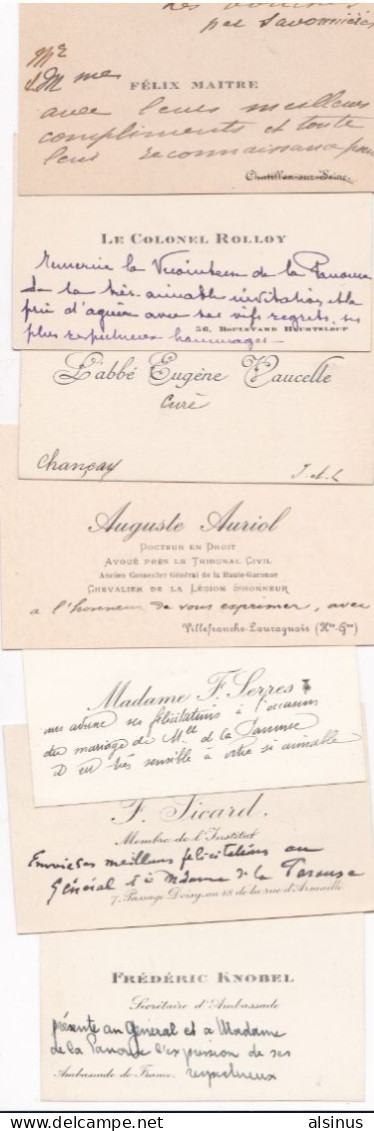 par Savonnières
Mr
& Mmes
FÉLIX MAITRE
avec leurs meilleurs
compliments et toute
leur reconnaissance pour
Chatillon-sur-Seine
LE COLONEL ROLLOY
Remercie la Vicomtesse de la Panouse
de sa très aimable invitation et la
prie d'agréer avec ses vifs regrets, ses
56, BOULEVARD HEURTELOUP
plus respectueux hommages -
L'abbé Eugène Vaucelle
Curé
Chançay
I.-et-L
Auguste Auriol
DOCTEUR EN DROIT
AVOUÉ PRÈS LE TRIBUNAL CIVIL
Ancien Conseiller Général de la Haute-Garonne
CHEVALIER DE LA LÉGION D'HONNEUR
a l'honneur de vous exprimer, avec
Villefranche-Lauraguais (Hte-Gne)
Madame F. Serres
vous adresse ses félicitations à l'occasion
du mariage de Mlle de la Panouse
et est très sensible à votre si aimable
F. Sicard.
Membre de l'Institut
Envoie ses meilleures félicitations au
Général et à Madame de la Panouse
7, Passage Doisy, au 18 de la rue d'Armaillé
FRÉDÉRIC KNOBEL
Secrétaire d'Ambassade
présente au Général et à Madame
de la Panouse l'expression de ses
Ambassade de France. respectueux
delcampe.net
alsinus